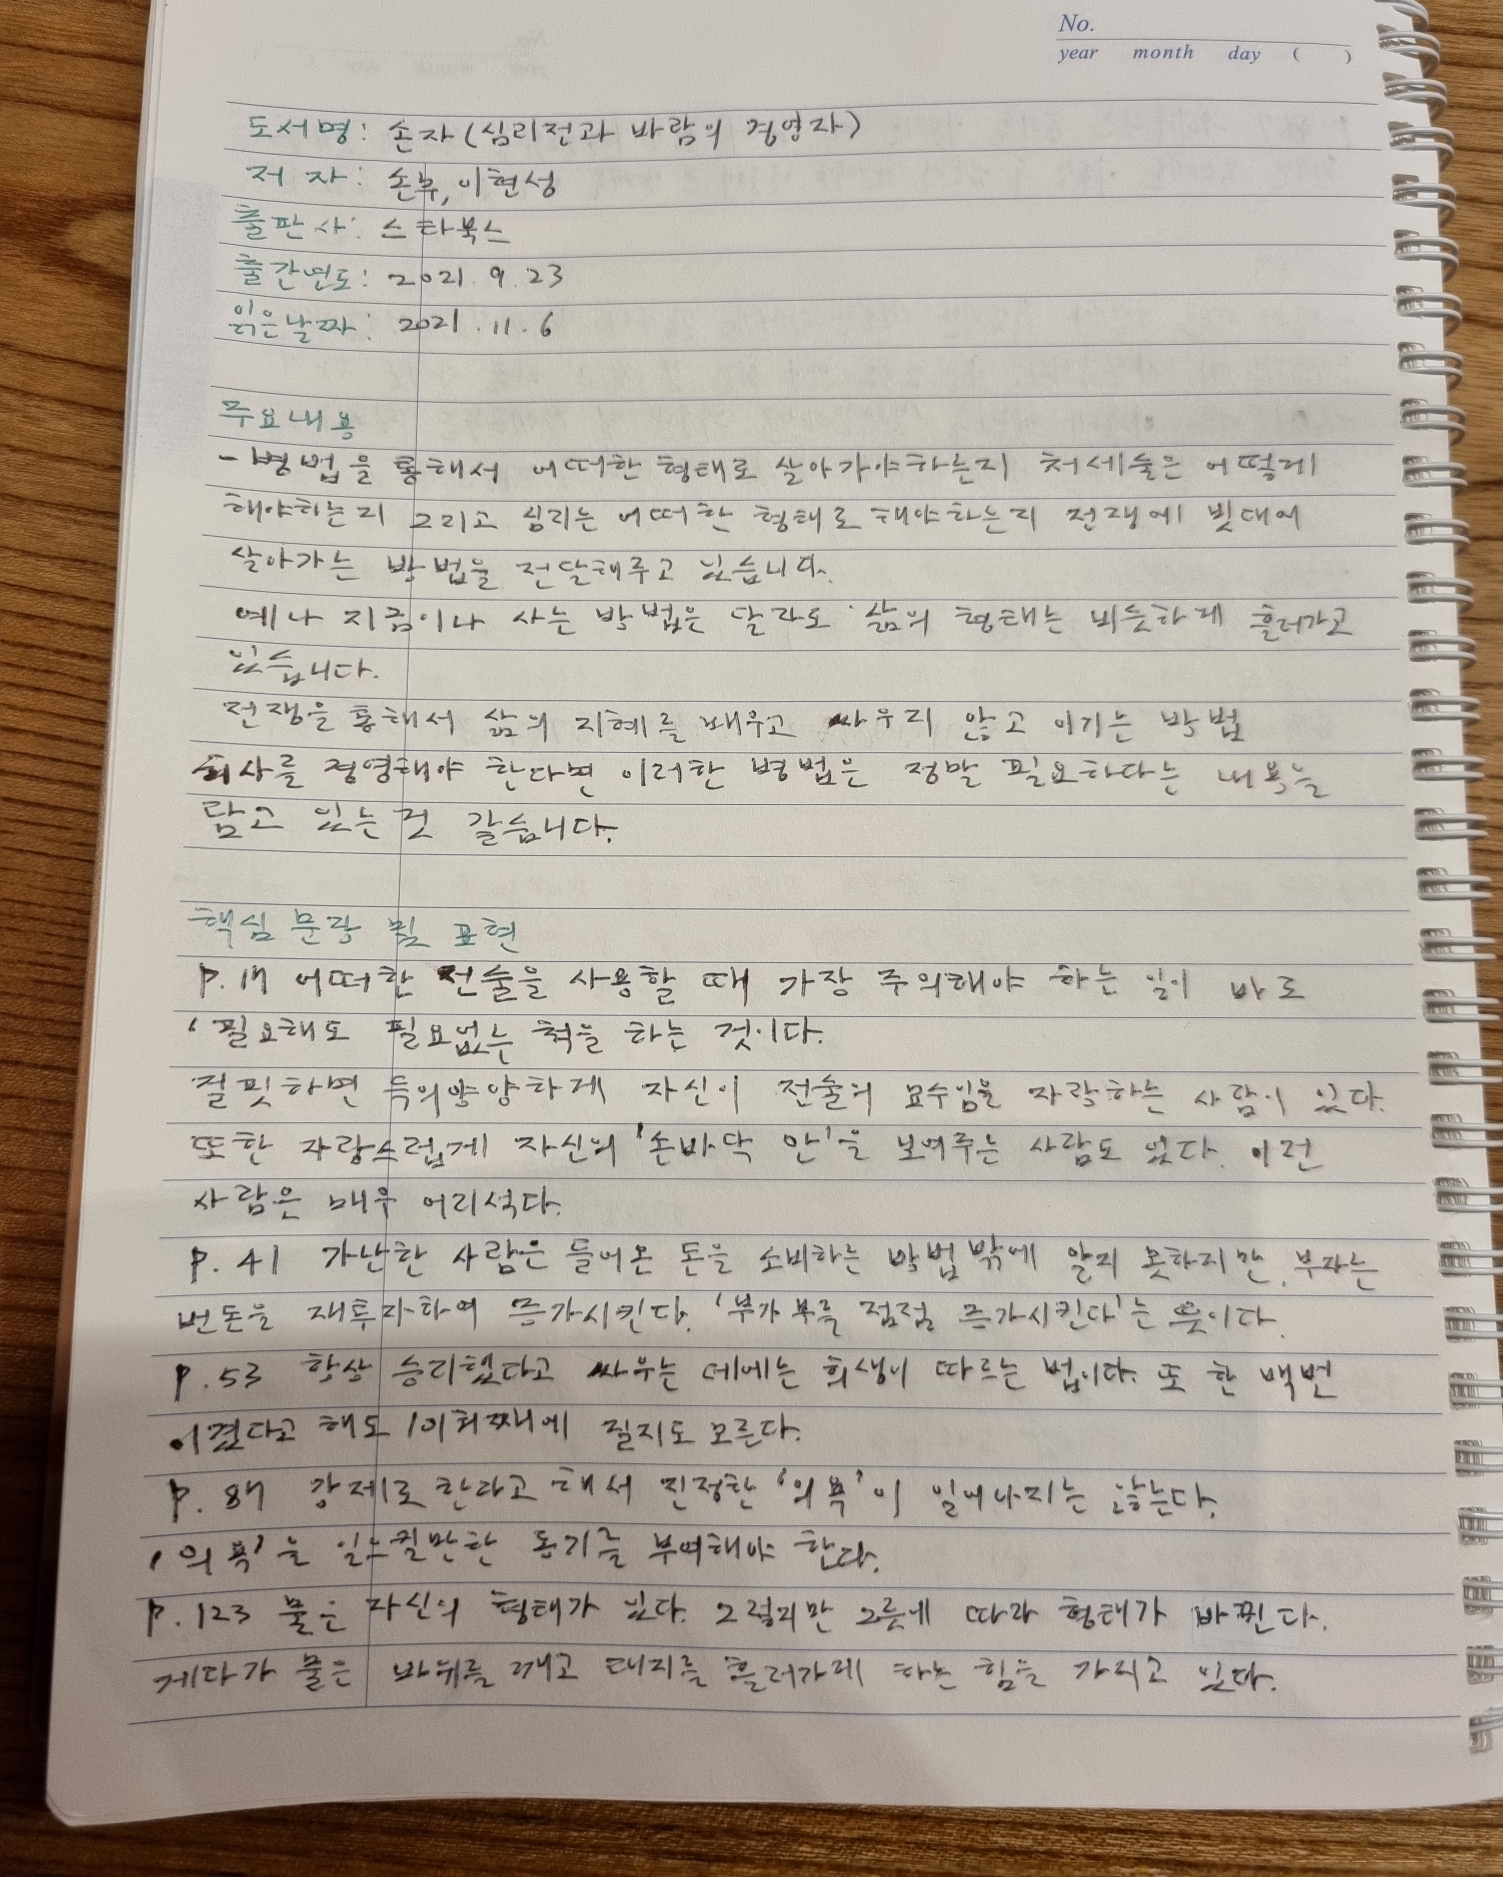 No.
year month day ( )
도서명: 손자(심리전과 바람의 경영자)
저 자: 손무, 이현성
출판사: 스타북스
출간연도: 2021. 9. 23
읽은날짜: 2021. 11. 6
주요내용
- 병법을 통해서 어떠한 형태로 살아가야하는지 처세술은 어떻게
해야하는지 그리고 심리는 어떠한 형태로 해야하는지 전쟁에 빗대어
살아가는 방법을 전달해주고 있습니다.
예나 지금이나 사는 방법은 달라도 삶의 형태는 비슷하게 흘러가고
있습니다.
전쟁을 통해서 삶의 지혜를 배우고 싸우지 않고 이기는 방법
회사를 경영해야 한다면 이러한 병법은 정말 필요하다는 내용을
담고 있는 것 같습니다.
핵심 문장 및 표현
P. 17 어떠한 전술을 사용할 때 가장 주의해야 하는 일이 바로
'필요해도 필요없는 척을 하는 것이다.
걸핏하면 득의양양하게 자신이 전술의 묘수임을 자랑하는 사람이 있다.
또한 자랑스럽게 자신의 '손바닥 안'을 보여주는 사람도 있다. 이런
사람은 매우 어리석다.
P. 41 가난한 사람은 들어온 돈을 소비하는 방법밖에 알지 못하지만, 부자는
번돈을 재투자하여 증가시킨다. '부가 부를 점점 증가시킨다'는 뜻이다.
P. 53 항상 승리했다고 싸우는 데에는 희생이 따르는 법이다. 또 한 백번
이겼다고 해도 101회째에 질지도 모른다.
P. 87 강제로 한다고 해서 진정한 '의욕'이 일어나지는 않는다.
'의욕'을 일으킬만한 동기를 부여해야 한다.
P. 123 물은 자신의 형태가 있다. 그렇지만 그릇에 따라 형태가 바뀐다.
게다가 물은 바위를 깨고 대지를 흘러가게 하는 힘을 가지고 있다.